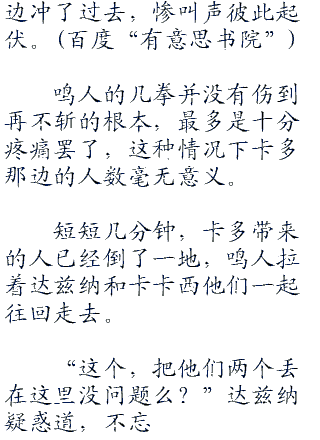 边冲了过去，惨叫声彼此起
伏。(百度“有意思书院”)
鸣人的几拳并没有伤到
再不斩的根本，最多是十分
疼痛罢了，这种情况下卡多
那边的人数毫无意义。
短短几分钟，卡多带来
的人已经倒了一地，鸣人拉
着达兹纳和卡卡西他们一起
往回走去。
“这个，把他们两个丢
在这里没问题么？”达兹纳
疑惑道，不忘